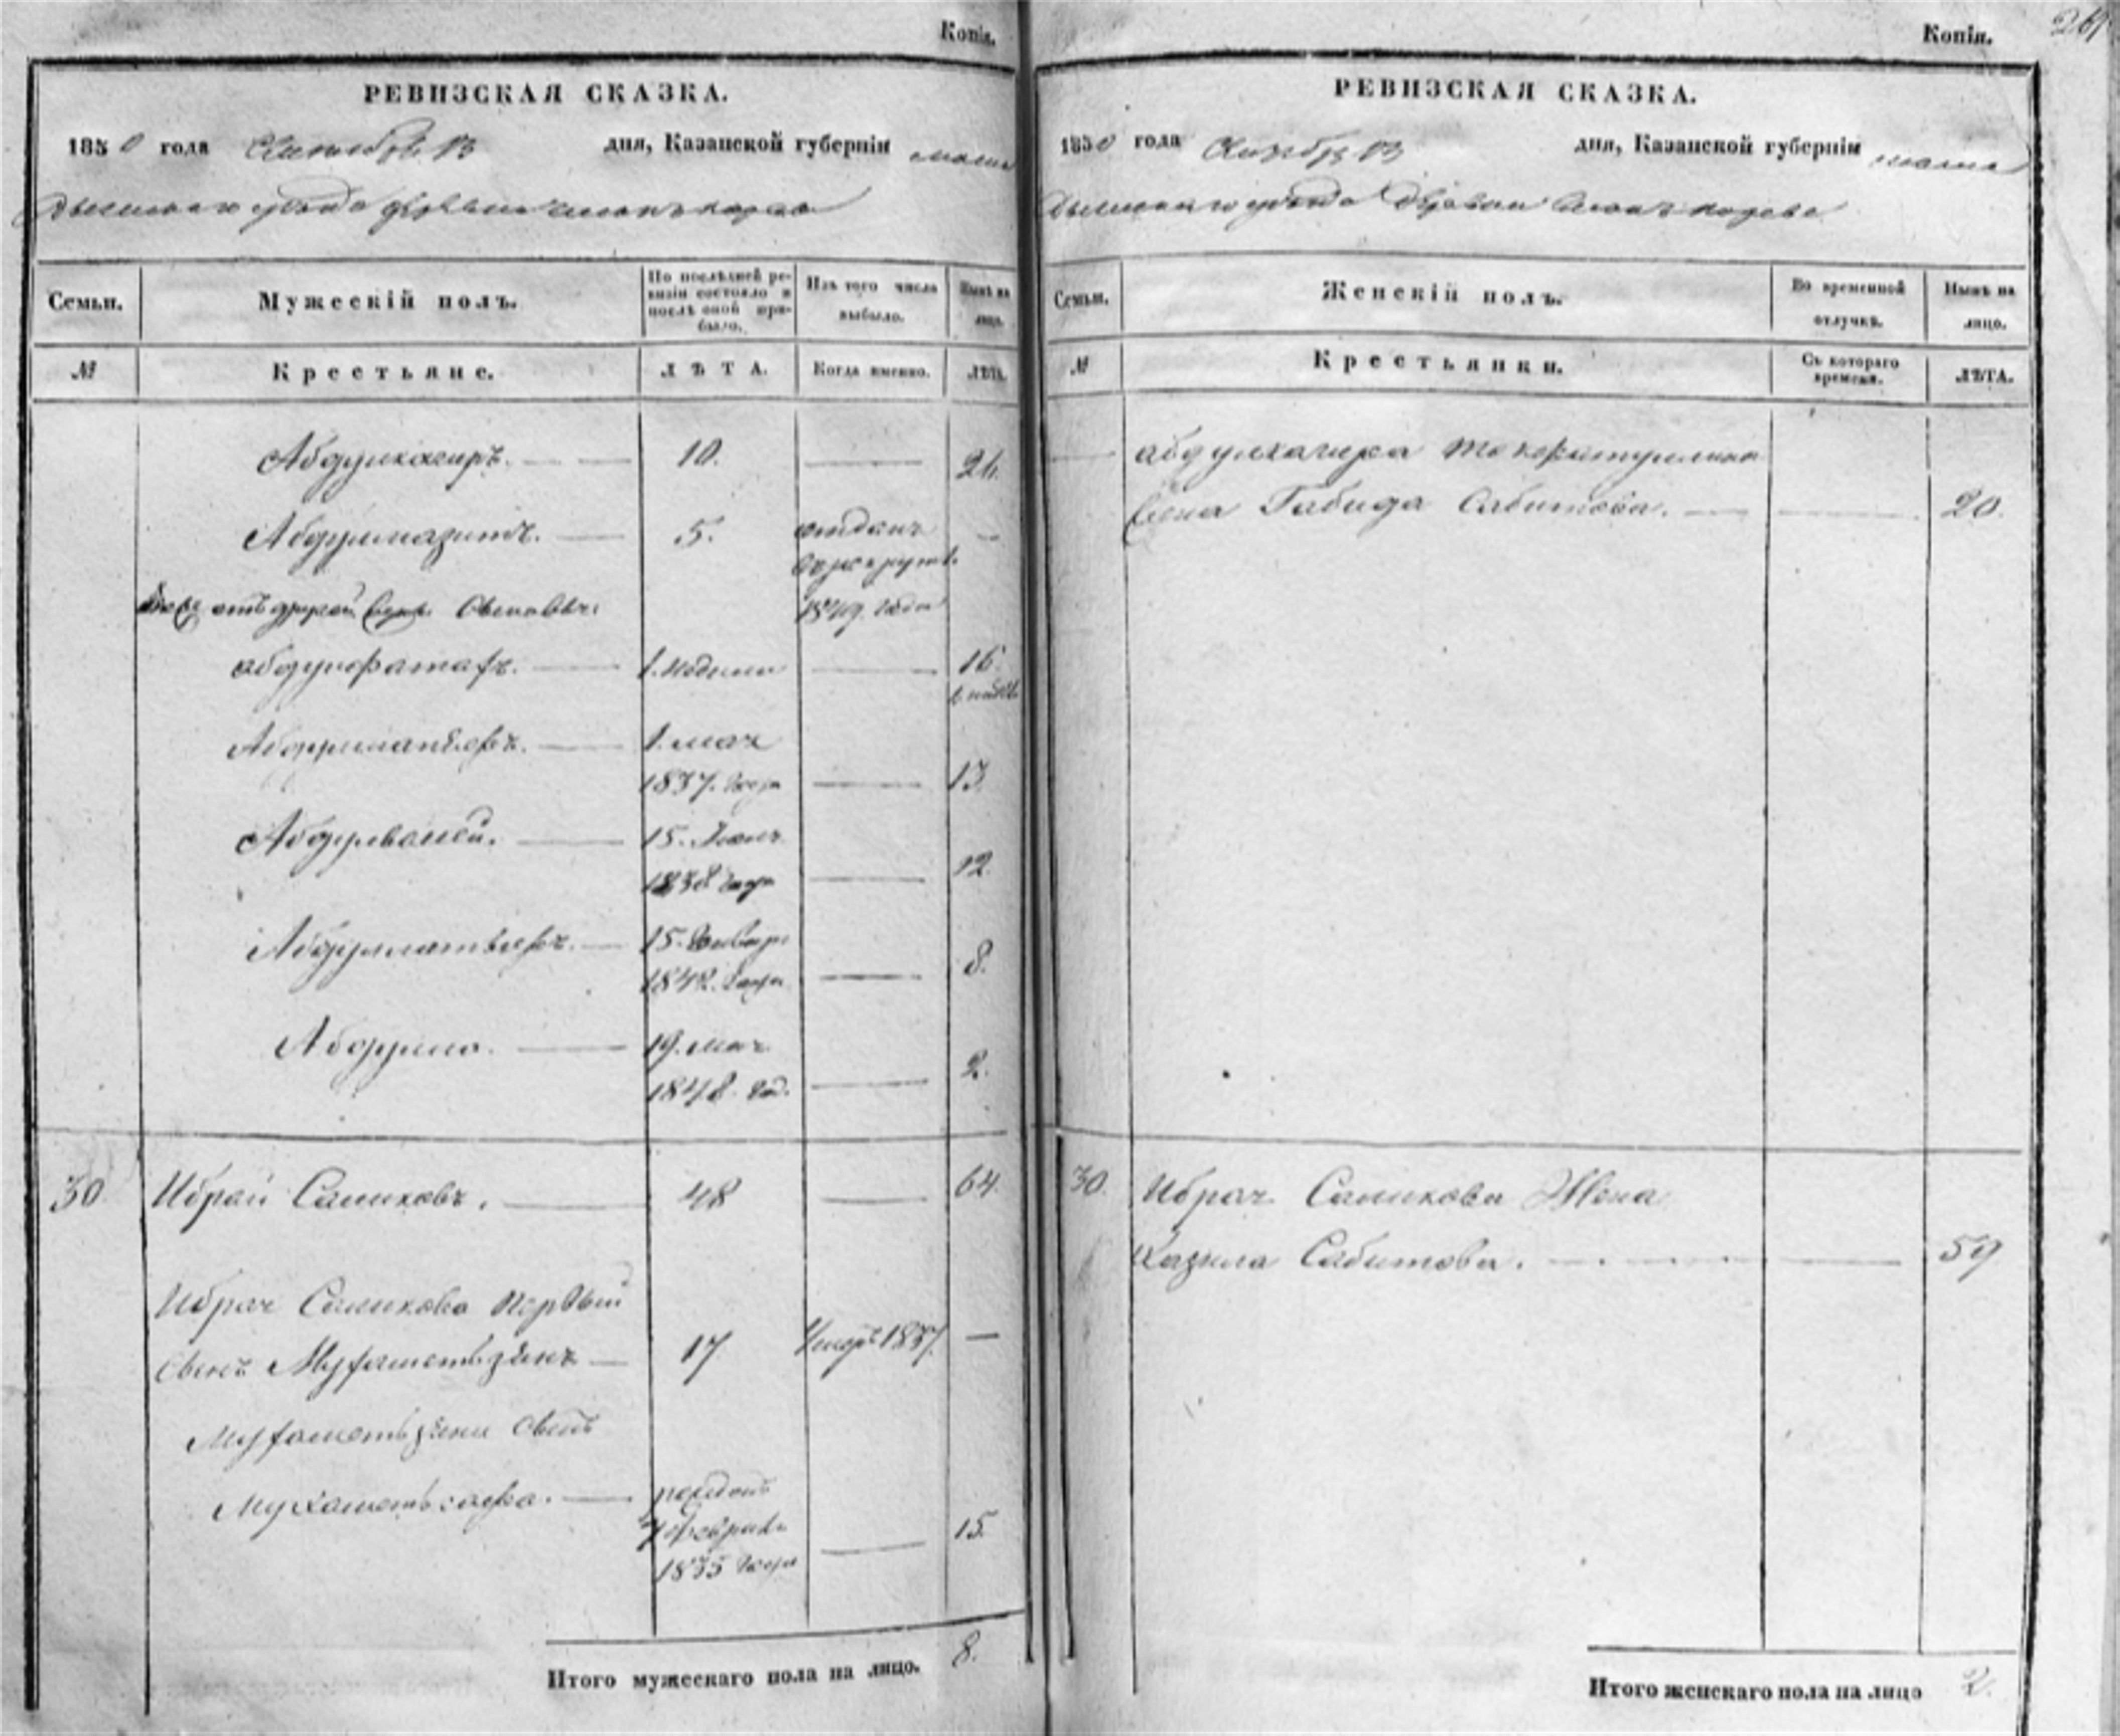 Копія.
РЕВИЗСКАЯ СКАЗКА.
1850 года Октября 13 дня, Казанской губерніи мама
дышскаго уѣзда деревни
Семьи.
Мужескій полъ.
По послѣдней ре-
визіи состояло и
послѣ оной при-
было.
Изъ того числа
выбыло.
Нынѣ на
лицо.
№
Крестьяне.
ЛѢТА.
Когда именно.
ЛѢТА.
Абдулкагиръ. 10. 26.
Абдулмазитъ. 5. отданъ
въ рекруты
1849. года
сынъ
абдулфатахъ. 1. 16.
1. маія
1837. года 13.
15. Іюня
1838 года 12.
Абдуллатыфъ. 15. Января
1842. года 8.
Абдулла. 19. маія
1848. год. 2.
30 Ибрай Салиховъ. 48 64.
Ибрая Салихова Первый
Сынъ Мухаметьзянъ 17 Умеръ 1837.
Мухаметьзяна Сынъ
Мухаметьсафа. рожденъ
7 февраля
1835 года 15.
Итого мужескаго пола на лицо. 8.
Копія.
РЕВИЗСКАЯ СКАЗКА.
1850 года Октября 13 дня, Казанской губерніи мама
дышскаго уѣзда деревни
Семьи.
Женскій полъ.
Во временной
отлучкѣ.
Нынѣ на
лицо.
№
Крестьянки.
Съ котораго
времени.
ЛѢТА.
абдулкагира
Жена Габида Сабитова. 20.
30. Ибрая Салихова Жена
Сабитова. 59
Итого женскаго пола на лицо 2.